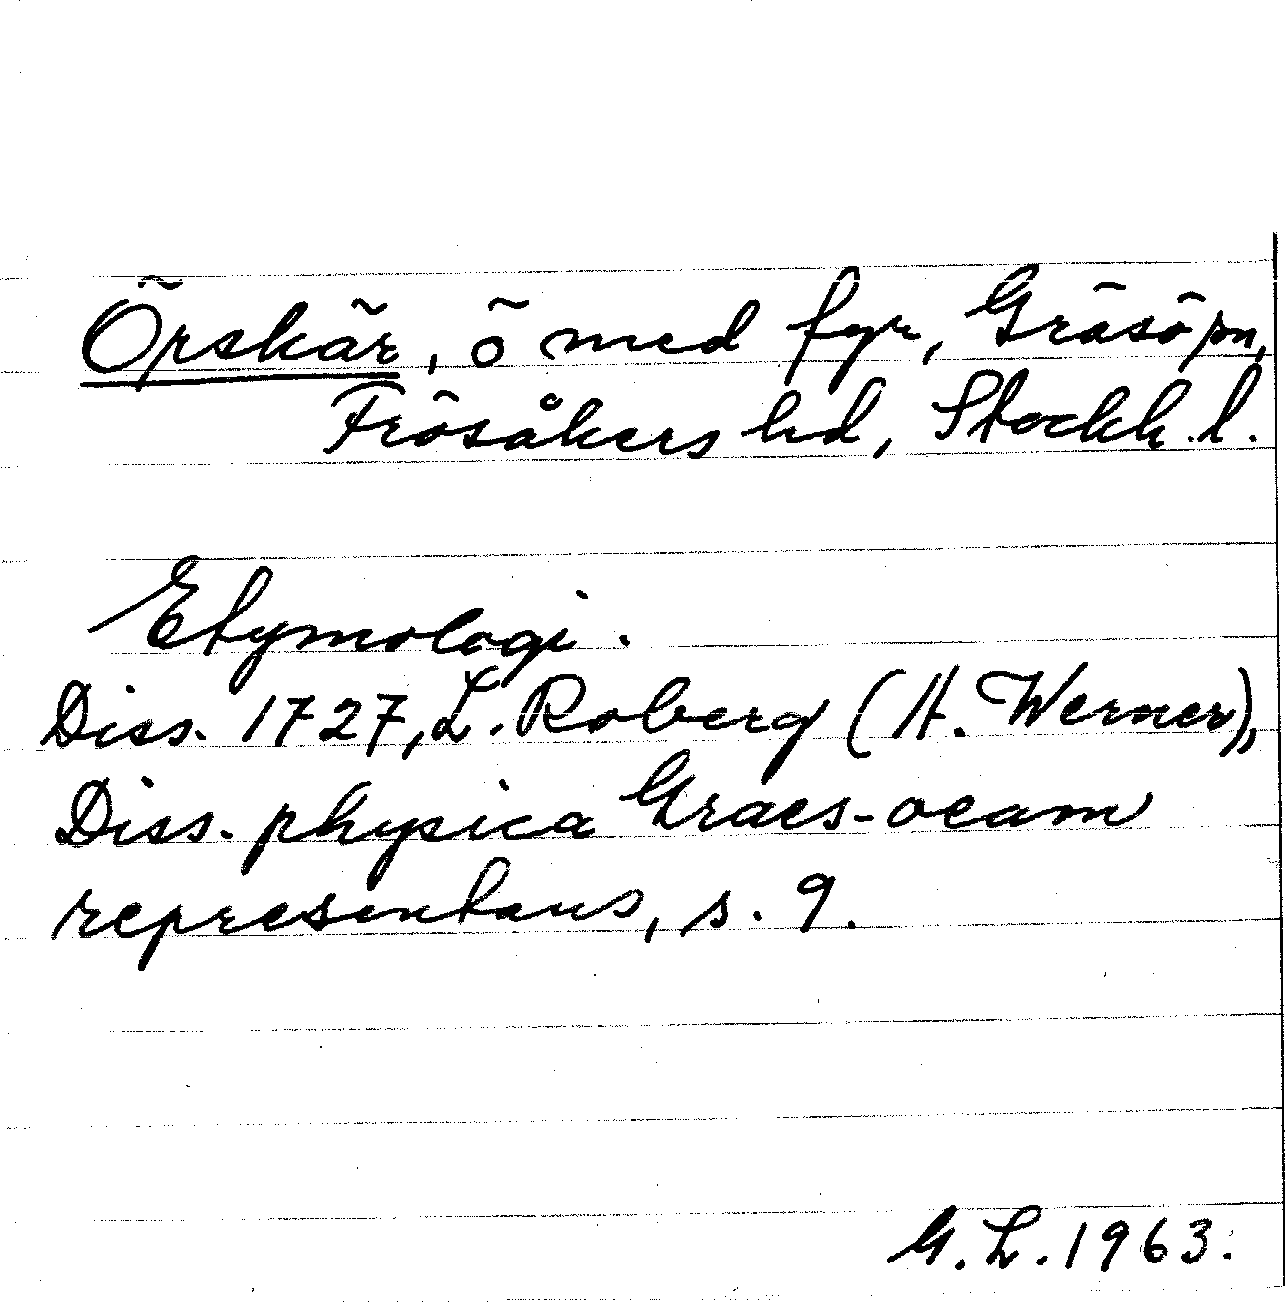 Örskär, ö med fyr, Gräsö sn,
Frösåkers hd, Stockh. l.
Etymologi.
Diss. 1727, L. Roberg (H. Werner),
Diss. physica Graes-oeam
repraesentans, s. 9.
G. L. 1963.